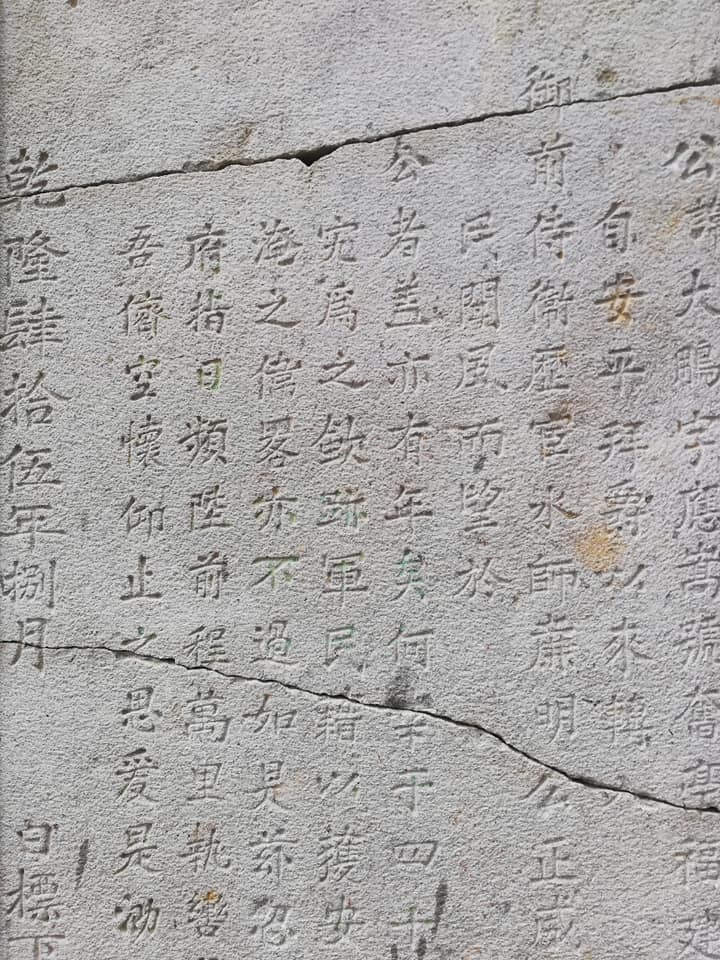 公諱大鵬字應嵩號奮
自安平拜爵以來轉
御前侍衛歷官水師廉明公正咸
民聞風而墍於
公者盖亦有年矣何幸于四十
宄為之歛跡軍民籍以獲安
海之偉畧亦不過如是茲召
府指日頻陞前程萬里執轡
吾儕空懷仰止之思爰是泐
乾隆肆拾伍年捌月 日標下